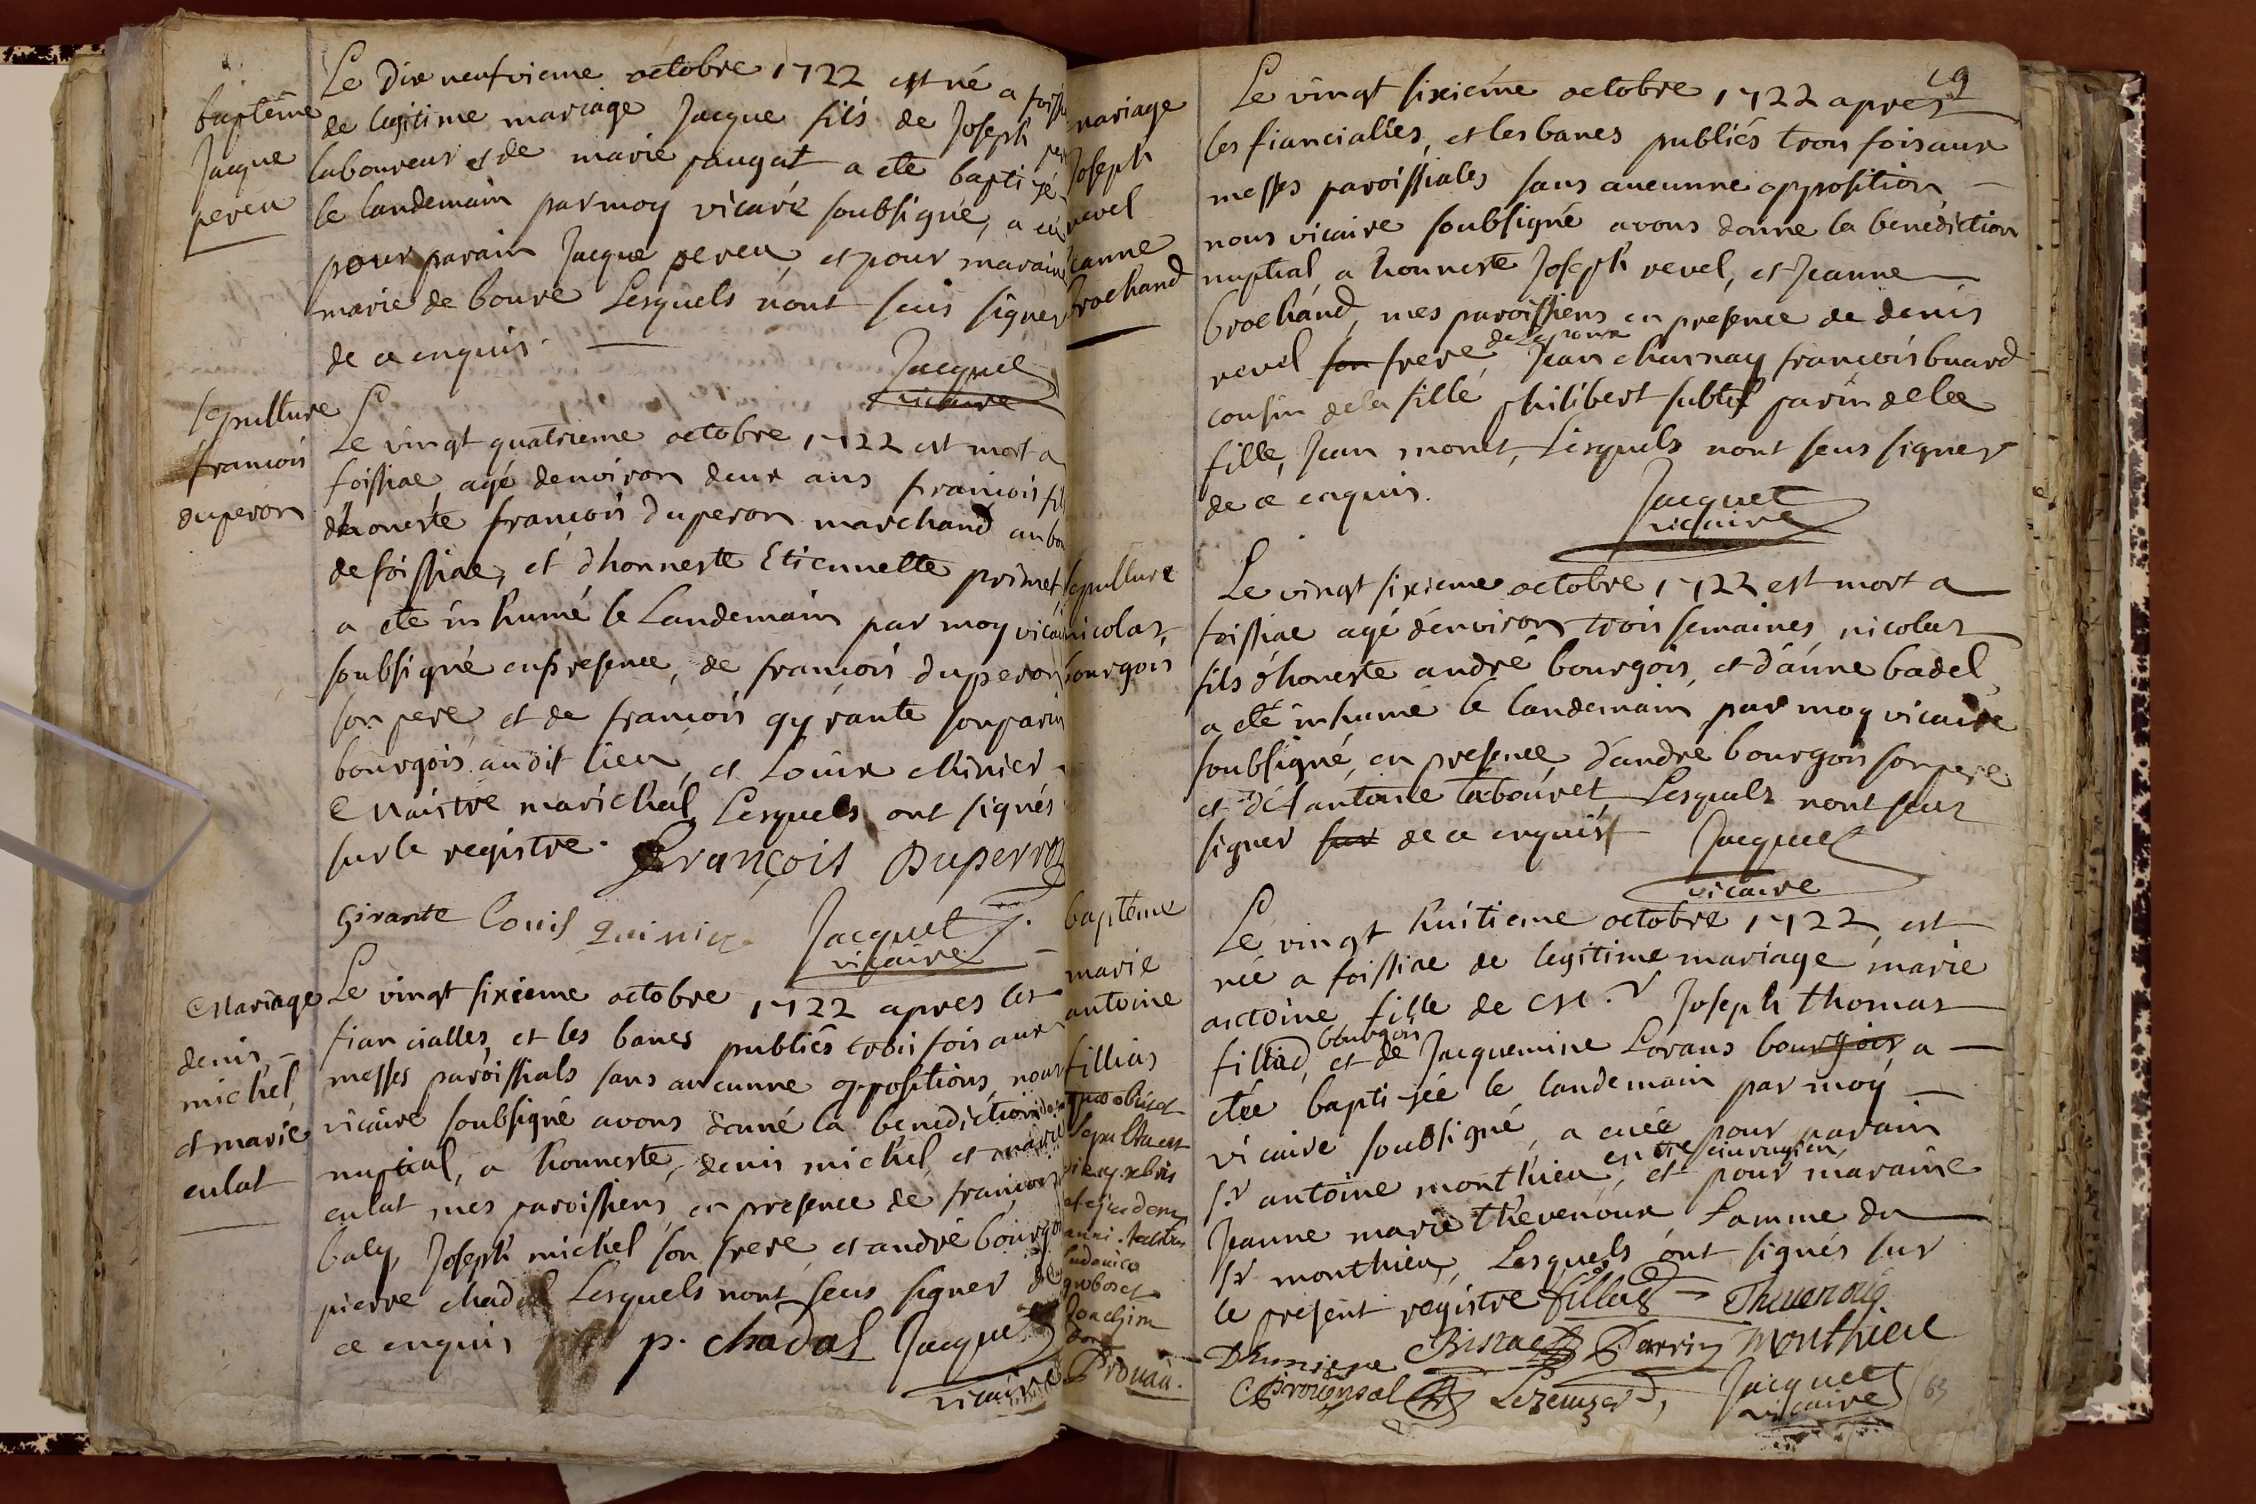 baptême
Jacque
pereu
Le Dix neufvieme octobre 1722 est né a foissia
de legitime mariage Jacque fils de Joseph pere
laboureur et de marie paugat a ete baptizé
le landemain par moy vicaire soubsigné, a eu
pour parain Jacque pereu, et pour maraine
marie de boure Lesquels nont sceus signer
de ce enquis.
Jacquet
vicaire
sepulture
francois
duperon
Le vingt quatrieme octobre 1722 est mort a
foissiac, agé denviron deux ans francois fils
dhoneste francois duperon marchand au bou
de foissiac, et dhonneste Etiennette primet
a ete inhumé le Landemain par moy vicaire
soubsigné en presence, de francois duperon
son pere et de francois gyrante son parin
bourgois audit lieu, et Louix
Maistre marichal, Lesquels ont signés
sur le registre. François Duperron
Girante Louis
Jacquet
vicaire
Mariage
denis
michel,
et marie
culat
Le vingt sixieme octobre 1722 apres les
fiancialles, et les bancs publiés trois fois aux
messes paroissials sans aucunne oppositions, nous
vicaire soubsigné avons donné la benediction
nuptial, a honneste, denis michel, et marie
culat mes paroissiens, en presence de francois
baly, Joseph michel son frere, et andré bourgois
pierre chadal Lesquels nont sceus signer de
ce enquis p. chadal Jacquet
vicaire
19
mariage
Joseph
revel
Jeanne
brochand
Le vingt sixiéme octobre 1722 apres
les fiancialles, et les bancs publiés trois fois aux
messes paroissiales sans aucunne opposition
nous vicaire soubsigné avons donne la benediction
nuptial, a honneste Joseph revel, et Jeanne
brochand, mes paroissiens en presence de denis
revel son frere, de lepoux Jean charnay francois buard
cousin de la fille philibert subtil parin de la
fille, Jean monet, Lesquels nont sceus signer
de ce enquis.
Jacquet
vicaire
sepulture
nicolas
bourgois
Le vingt sixieme octobre 1722 est mort a
foissiac agé denviron trois semaines nicolas
fils dhoneste andré bourgois, et d'anne badel
a eté inhumé le landemain par moy vicaire
soubsigné, en presence, dandre bourgois son pere
et d'antoine tabouret, Lesquels nont sceus
signer sur de ce enquis Jacquet
vicaire
baptême
marie
antoine
fillias
quo obiit et
sepulta est
die 29 xbris
et ejusdem
anni. testibus
ludovico
guboset
Joachim
don
Prouan.
Le vingt huitieme octobre 1722, est
née a foissiac de legitime mariage marie
antoine fille de Mr. Joseph thomas
filliad, bourgois et de Jacquemine Lorans bourgois, a
etée baptisée le landemain par moy
vicaire soubsigné, a euée pour parain
sr antoine monthieu, Me chirurgien, et pour maraine
Jeanne marie thevenoux famme du
sr monthieu, Lesquels ont signés sur
le present registre filliad Thevenoux
Brisac Perrin Monthieu
Prouinsal Lezemzer, Jacquet
vicaire
63